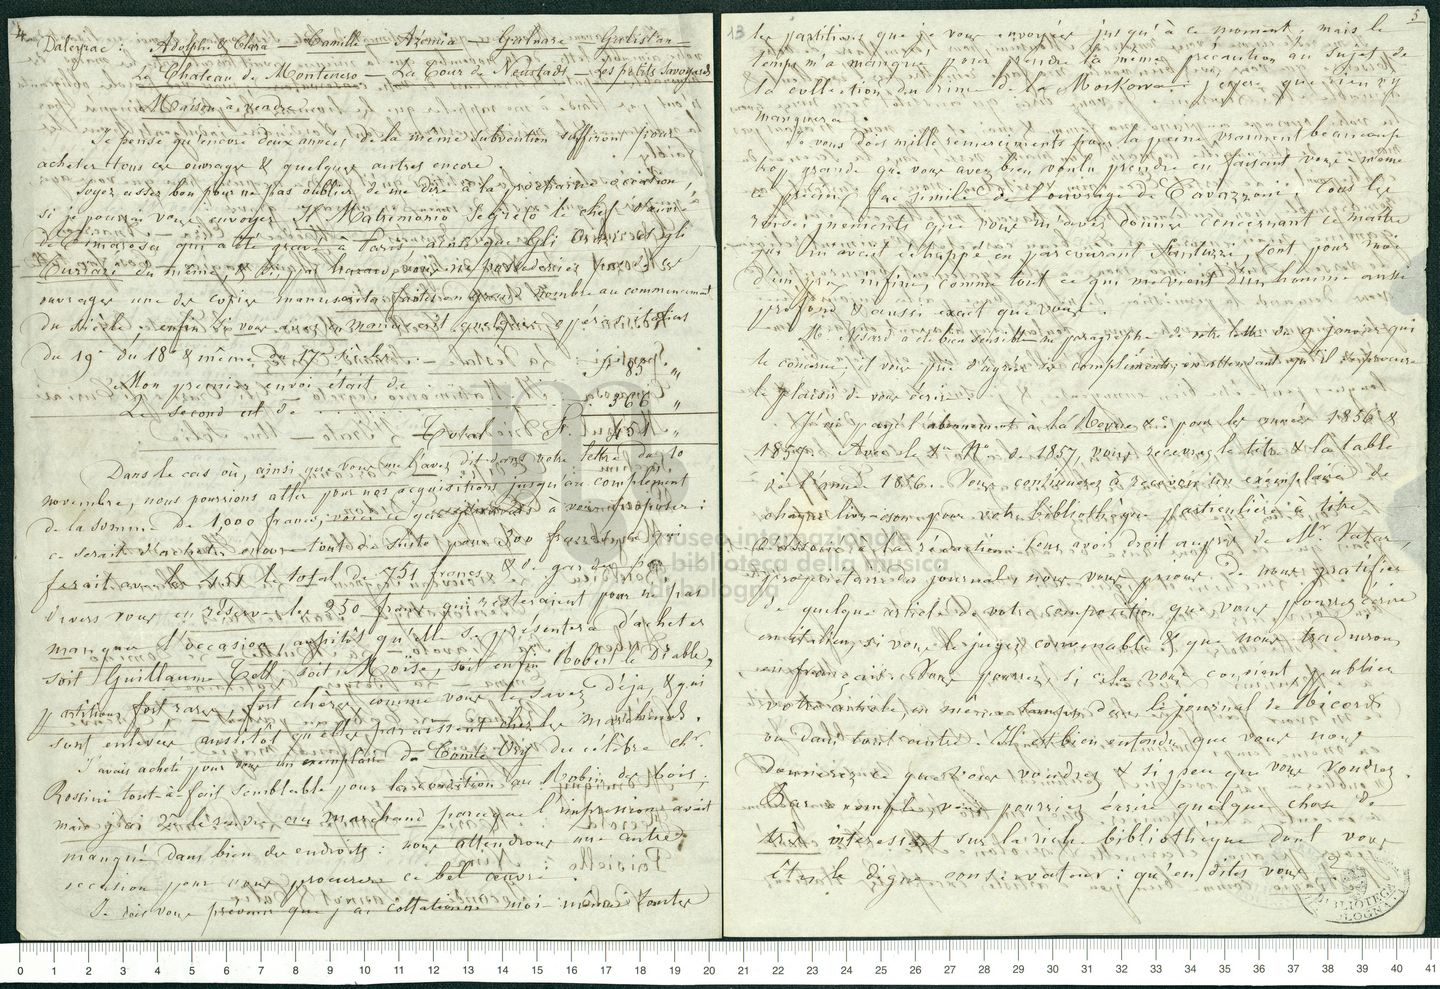 4
Daleyrac : Adolphe & Clara — Camille — Azémia — Gulnare — Gulistan —
Le Chateau de Montenero — La Tour de Neustadt — Les petits Savoyards
Maison à vendre
Je pense qu'encore deux années de la même subvention suffiront pour
acheter tous ces ouvrages & quelques autres encore.
Soyez assez bon pour ne pas oublier de me dire à la prochaine occasion
si je pourrai vous envoyer Il Matrimonio Segreto le chef d'œuvre
de Cimarosa qui a été gravé à Paris ainsi que Gli Orazi ed i
Curiazi du même & si, par hazard, vous ne possederiez pas de ces
ouvrages une des copies manuscrites faites en grand nombre au commencement
du siècle ; enfin si vous avez en manuscrit quelques opéras italiens
du 19e du 18e & même du 17e siècle.
Mon premier envoi était de Fr 85 "
Le second est de 366 "
Total Fr. 451 "
Dans le cas où, ainsi que vous me l'avez dit dans votre lettre du 10
novembre, nous pourrions aller pour nos acquisitions jusqu'au complément
de la somme de 1,000 francs, voici ce que à vous proposer :
ce serait d'acheter encore tout de suite pour 300 francs ce qui
ferait avec les 451 le total de 751 francs & de garder par
divers vous en réserve les 250 francs qui resteraient pour ne pas
manquer l'occasion, aussitôt qu'elle se présentera d'acheter
soit Guillaume Tell, soit Moïse, soit enfin Robert le Diable,
partitions fort rares, fort chères comme vous le savez déjà, & qui
sont enlevées aussitôt qu'elles paraissent chez les marchands.
J'avais acheté pour vous un exemplaire du Comte Ory du célèbre Chr.
Rossini tout-à-fait semblable pour la condition au Robin des bois ;
mais je l'ai laissé au marchand parceque l'impression avait
manqué dans bien des endroits : nous attendrons une autre
occasion pour vous procurer ce bel œuvre.
Je dois vous prévenir que j'ai collationné moi-même toutes
5
13
les partitions que je vous ai envoyées jusqu'à ce moment ; mais le
temps m'a manqué pour prendre la même précaution au sujet de
la collection du Prince de la Moskowa : j'espère que rien n'y
manquera.
Je vous dois mille remerciments pour la peine vraiment beaucoup
trop grande que vous avez bien voulu prendre en faisant vous-même
ce précieux fac simile de l'ouvrage de Cavazzoni : tous les
renseignements que vous m'avez donnés concernant ce maître
qui m'avait échappé en parcourant sont pour moi
d'un prix infini, comme tout ce qui me vient d'un homme aussi
profond & aussi exact que vous.
M. Nisard a été bien sensible au paragraphe de votre lettre du 9 janvier qui
le concerne ; il vous prie d'agréer ses compliments en attendant qu'il se procure
le plaisir de vous écrire.
J'ai payé l'abonnement à la Revue &c pour les années 1856 &
1857. Avec le 1er No de 1857, vous recevrez le titre & la table
de l'année 1856. Vous continuerez à recevoir un exemplaire de
chaque livraison pour votre bibliothèque particulière à titre
d'associé à la rédaction. Pour avoir droit auprès de Mr. Vatar,
propriétaire du journal, nous vous prions de nous gratifier
de quelque article de votre composition que vous pourrez écrire
en italien, si vous le jugez convenable & que nous traduirons
en français. Vous pourrez, si cela vous convient, publier
votre article, en même temps dans le journal de Ricordi
ou dans tout autre. Il est bien entendu que vous nous
donnerez ce que vous voudrez & si peu que vous voudrez.
Par exemple, vous pourriez écrire quelque chose de
très intéressant sur la riche bibliothèque dont vous
êtes le digne conservateur : qu'en dites vous
BIBLIOTECA
BOLOGNA
museo internazionale
e biblioteca della musica
di bologna
0 1 2 3 4 5 6 7 8 9 10 11 12 13 14 15 16 17 18 19 20 21 22 23 24 25 26 27 28 29 30 31 32 33 34 35 36 37 38 39 40 41